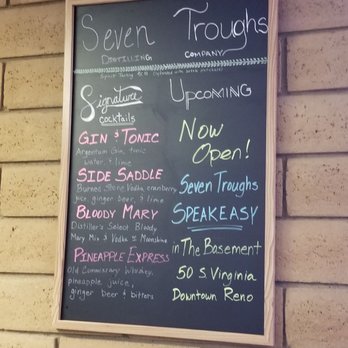 Seven Troughs
Distilling Company
Signature
Cocktails
Gin & Tonic
Argentum Gin, tonic
water, & lime
Side Saddle
Burned Stone Vodka, cranberry
juice, ginger beer, & lime
Bloody Mary
Distiller's Select Bloody
Mary Mix & Vodka or Moonshine
Pineapple Express
Old Commissary Whiskey,
pineapple juice,
ginger beer & bitters
Upcoming
Now
Open!
Seven Troughs
Speakeasy
in The Basement
50 S. Virginia
Downtown Reno